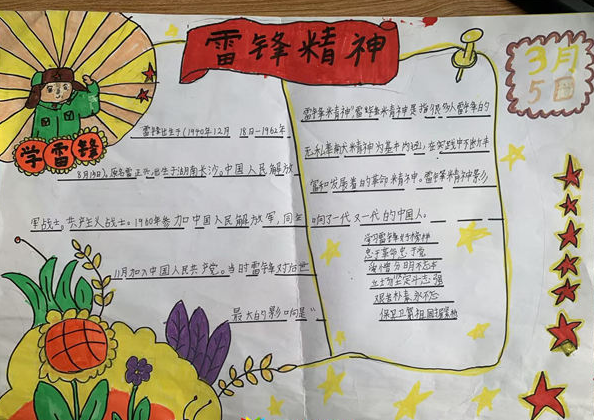 雷锋精神
3月
5日
学雷锋
雷锋出生于(1940年12月 18日-1962年
8月15日),原名雷正兴,出生于湖南长沙。中国人民解放
军战士。共产主义战士。1960年参加中国人民解放军,同年
11月加入中国人民共产党。当时雷锋对后世
最大的影响是“
雷锋精神”雷锋精神是指很多人雷锋的
无私奉献大精神为基本内涵,在实践中不断丰
富和发展着的革命精神。雷锋精神影
响了一代又一代的中国人。
学习雷锋好榜样
忠于革命忠于党
爱憎分明不忘本
立场坚定斗志强
艰苦朴素永不忘
保卫祖国